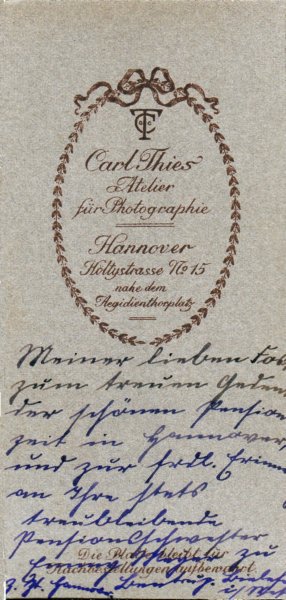 TC
Carl Thies
Atelier
für Photographie
Hannover
Höltystrasse No 15
nahe dem
Aegidienthorplatz
Meiner lieben
zum treuen Geden
der schönen Pension
zeit in Hannover,
und zur frdl. Erinn
an Ihre stets
treubleibende
Pensionsschwester
Die Platte bleibt für
Nachbestellungen aufbewahrt.
z. Zt. Hannover.